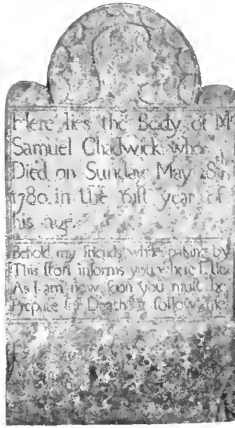 Here lies the Body of Mr
Samuel Chadwick who
Died on Sunday May
1780 in the year of
his age
Behold my friends while pasing by
This ston informs you where I lie
As I am now soon you must be
Prepare for Death & follow me